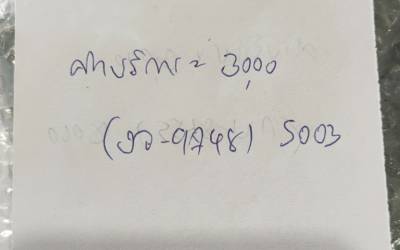 ค่าบริการ = 3,000
(ชว-9748) S003